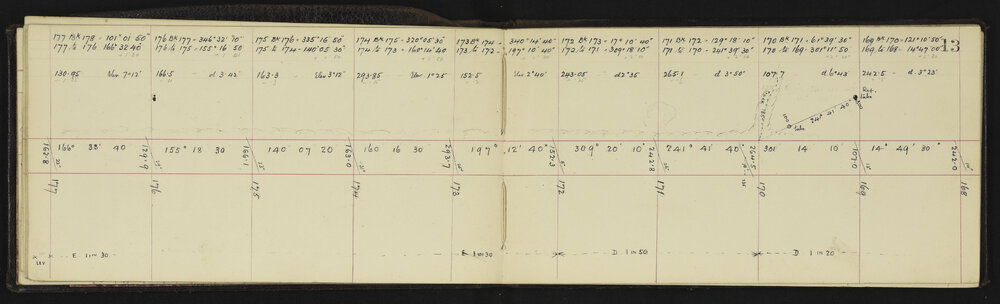 13
177 Bk 178 - 101° 01' 50"
177 to 176 166° 32' 40"
176 Bk 177 - 346° 32' 70"
176 to 175 - 155° 16' 50
175 Bk 176 - 335° 16' 50"
175 to 174 - 140° 05' 30"
174 Bk 175 - 320° 05' 30"
174 to 173 160° 14' 40
173 Bk 174 - 340° 14' 40"
173 to 172 - 197° 10' 40"
172 Bk 173 - 17° 10' 40"
172 to 171 - 309° 18' 10"
171 Bk 172 - 129° 18' 10"
171 to 170 - 241° 39' 30"
170 Bk 171 - 61° 39' 30"
170 to 169 - 301° 11' 50
169 Bk 170 - 121° 10' 50"
169 to 168 - 14° 47' 00"
130.95 Var 7° 12'
166.5 - d 3° 42'
163.3 - Var 3° 12'
293.85 - Var 1° 25'
152.5 Var 2° 40'
243.05 d 2° 35'
265.1 - d 3° 50'
107.7 d 6° 43'
242.5 - d 3° 23'
Ref. tube
tube
241° 41' 40"
166° 33' 40
155° 18 30
140 07 20
160 16 30
197° 12' 40"
309° 20' 10"
241° 41' 40"
301° 14 10
14° 49' 30"
162.8
129.9
166.1
163.0
293.7
152.3
242.8
264.5
107.0
242.0
177
176
175
174
173
172
171
170
169
168
E 1 in 30
E 1 in 30
D 1 in 50
D 1 in 20